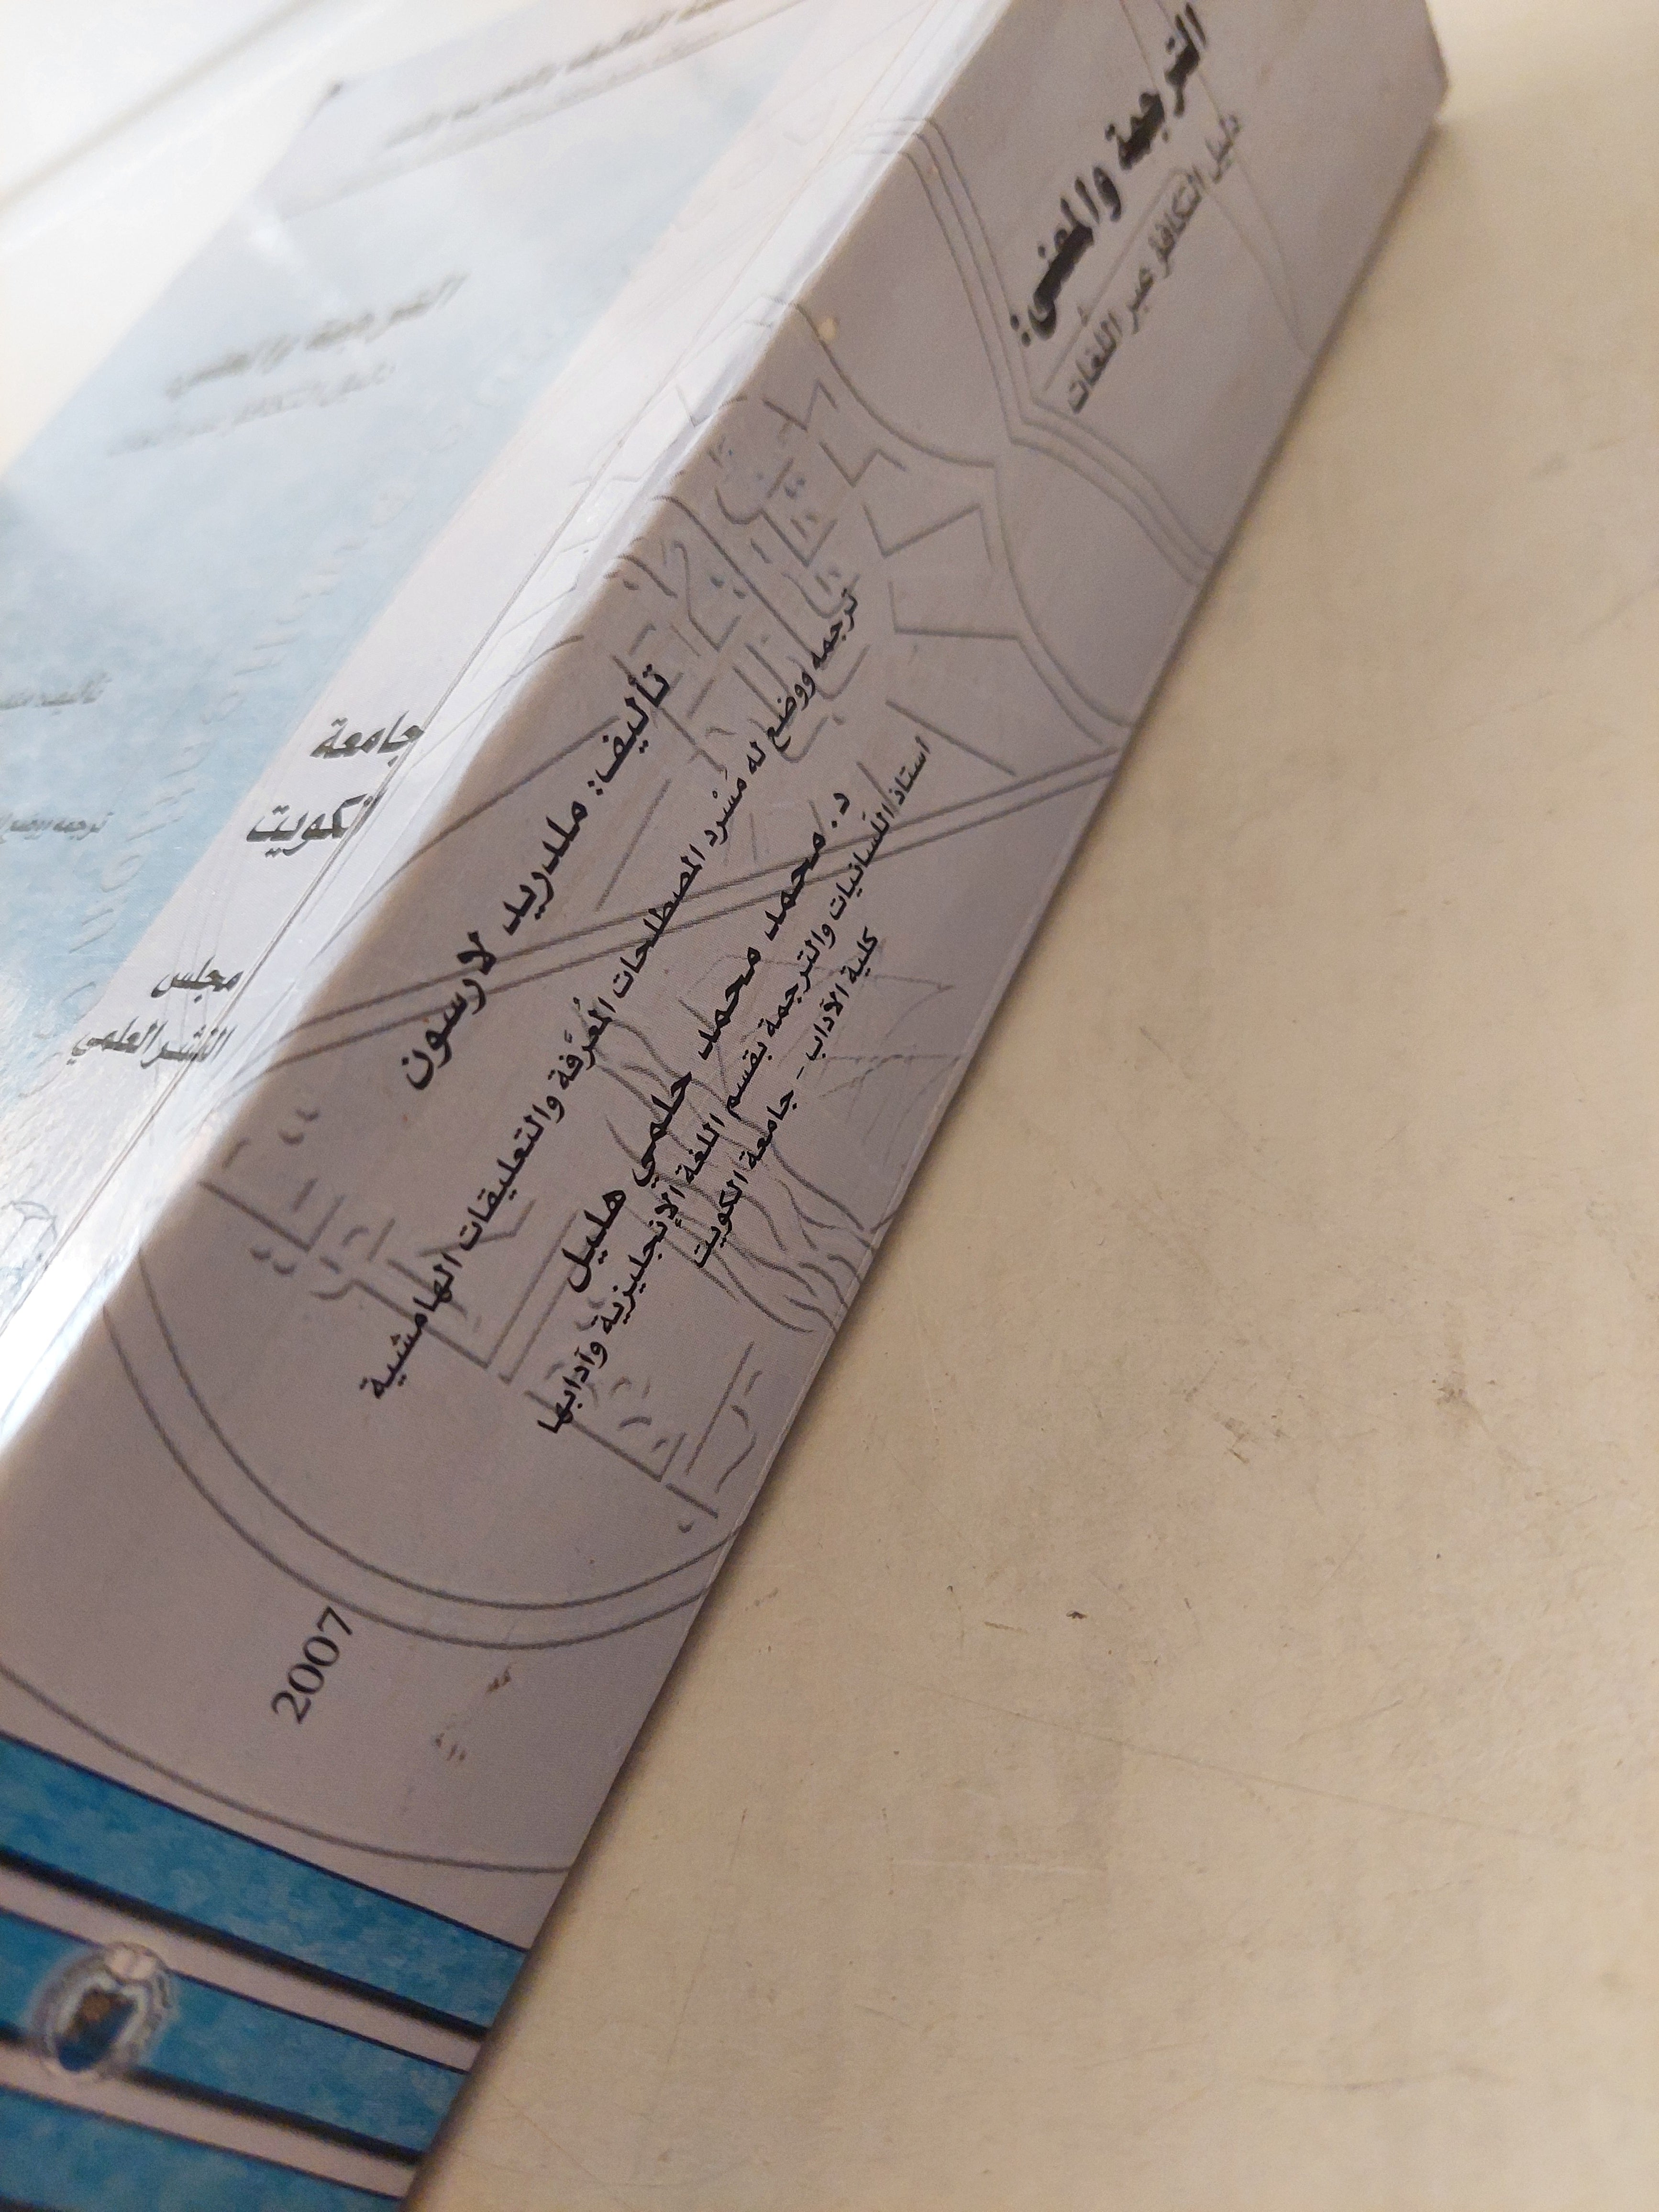 الترجمة والمعنى:
دليل التكافؤ عبر اللغات
تأليف: ملدريد لارسون
ترجمه ووضع له مَسْرد المصطلحات المُعرَّفة والتعليقات الهامشية
د. محمد محمد حلمي هليل
أستاذ اللسانيات والترجمة بقسم اللغة الإنجليزية وآدابها
كلية الآداب - جامعة الكويت
2007
جامعة
الكويت
مجلس
النشر العلمي